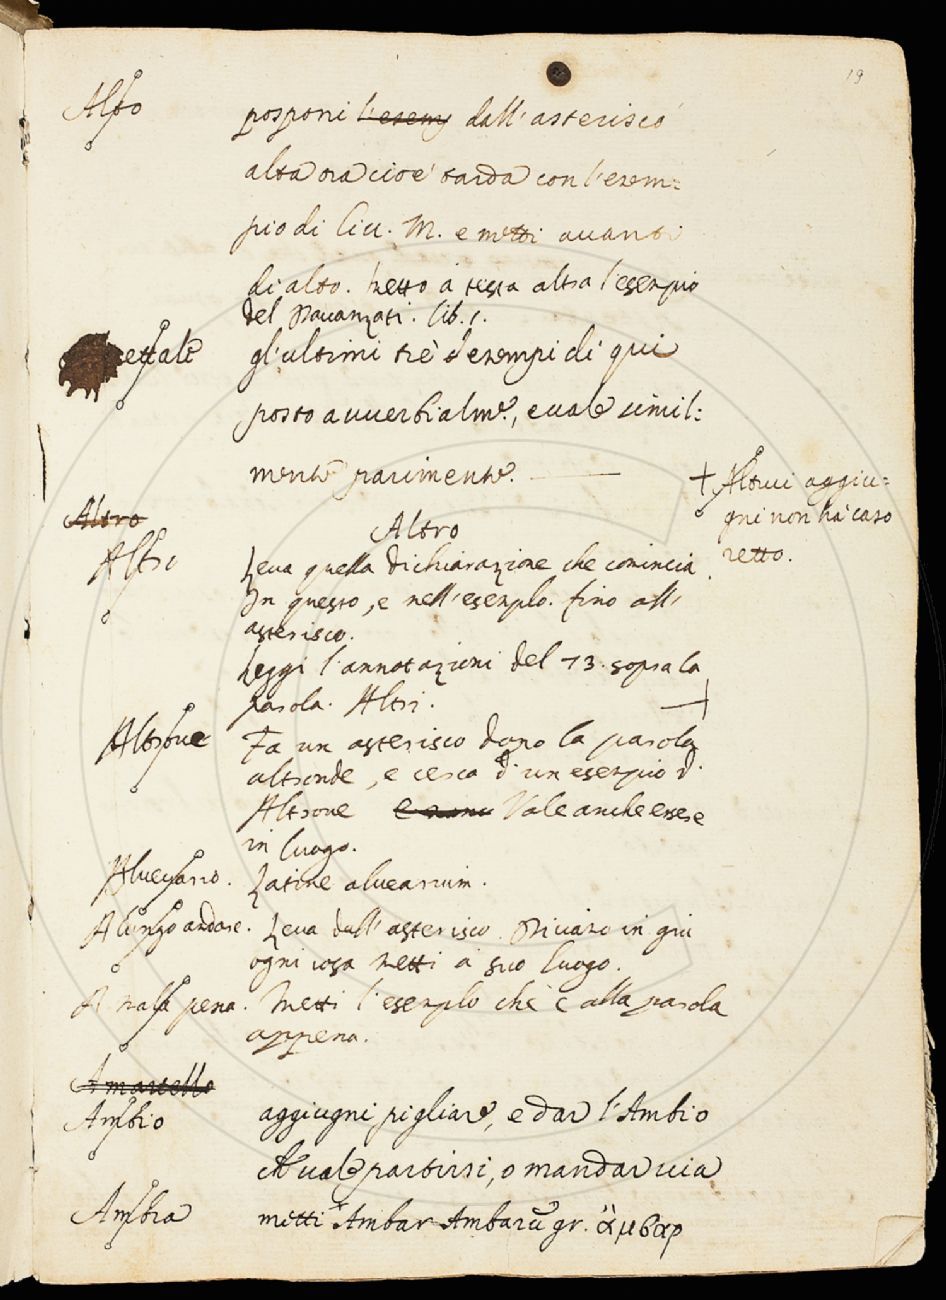 19
Alto posponi l'esemp dall'asterisco
alta ora cioè tarda con l'esem=
pio di Liv. M. e metti avanti
di alto. Metto à testa alta l'esempio
del Davanzati. lib. 1.
ettale gl'ultimi trè d'esempi di qui
posto avverbialm.e, e vale simil=
mente parimente.
+ Altrui aggiu=
gni non hà caso
retto.
Altro
Altro
Altri Leva quella dichiarazione che comincia
In questo, e nell'esemplo. fino all'
asterisco.
Leggi l'annotazioni del 73. sopra la
parola. Altri. +
Altrove Fa un asterisco dopo la parola
altronde, e cerca d'un esempio d.
Altrove Vale anche essere
in luogo.
Alvegiaro. Latine alvearium.
A lungo andare. Leva dall'asterisco. Diciaro in giu
ogni cosa metti à suo luogo.
A mala pena. Metti l'esemplo che è alla parola
appena.
Amartello
Ambio aggiugni pigliare, e dar l'Ambio
vale partirsi, o mandar via
Ambra metti Ambar Ambarũ gr. ἄμβαρ